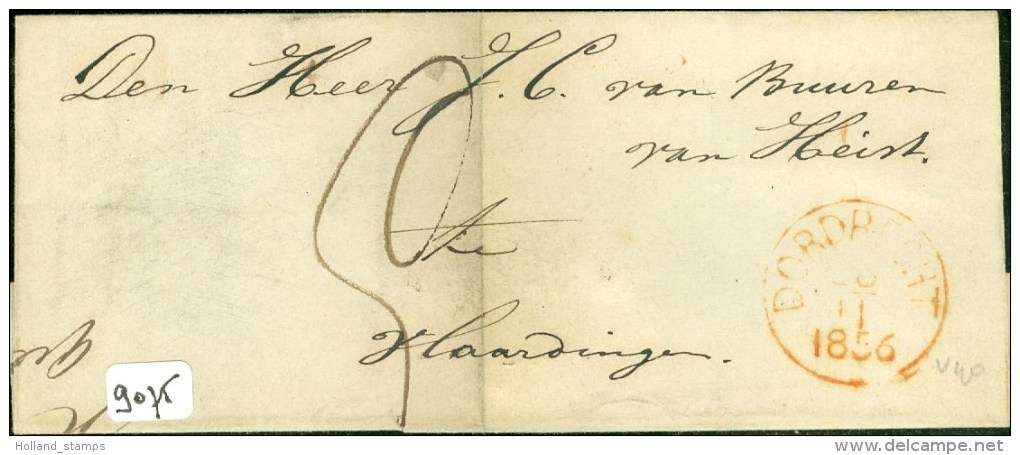 Den Heer J. C. van Buuren
van Heist.
te
Vlaardingen.
DORDRECHT
11
1856
9075
Holland_stamps
www.delcampe.net